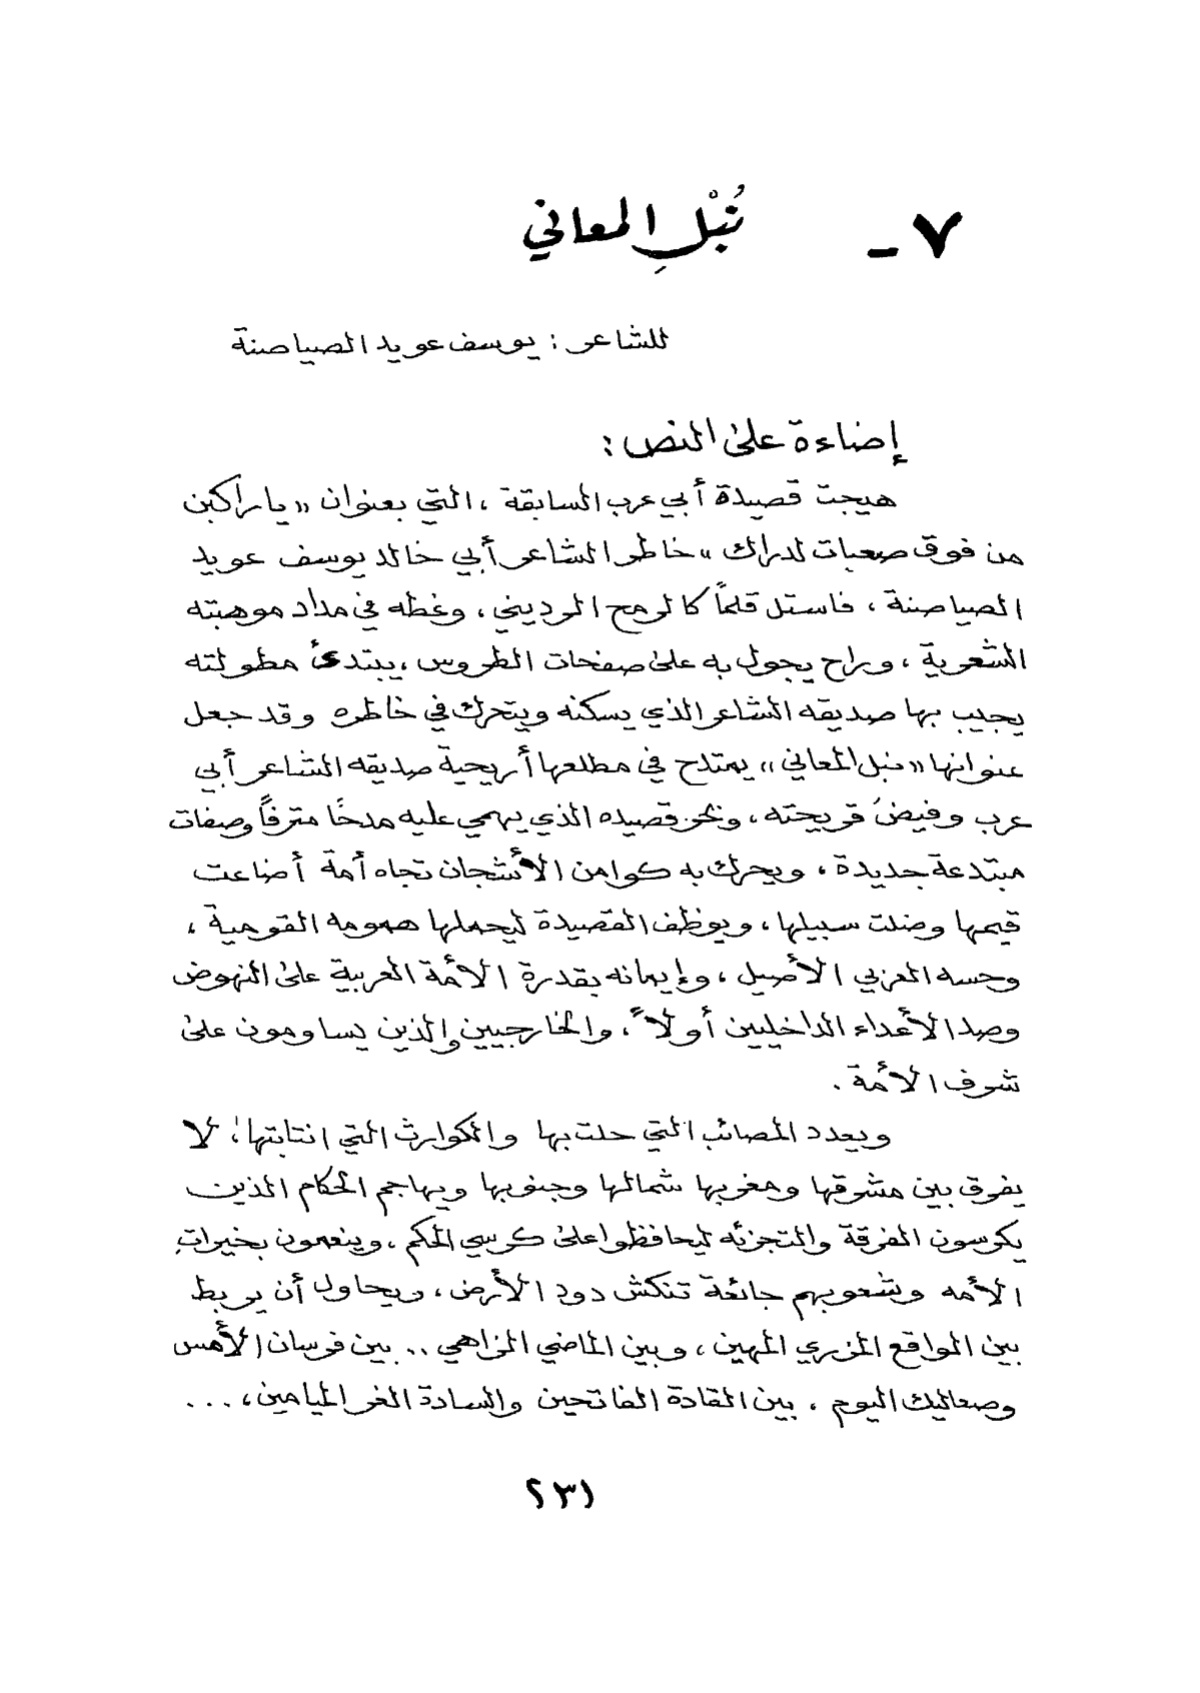 ٧ - نُبْلِ المعاني
للشاعر : يوسف عويد الصياصنة
إضاءة على النص :
هيجت قصيدة أبي عرب السابقة ، التي بعنوان « يا راكبن
من فوق صعبات لدراك » خاطر الشاعر أبي خالد يوسف عويد
الصياصنة ، فاستل قلماً كالرمح الرديني ، وغطه في مداد موهبته
الشعرية ، وراح يجول به على صفحات الطروس ، يبتدئ مطولته
يجيب بها صديقه الشاعر الذي يسكنه ويتحرك في خاطره وقد جعل
عنوانها « نبل المعاني » يمتدح في مطلعها أريحية صديقه الشاعر أبي
عرب وفيضُ قريحته ، ونحز قصيده الذي يهمي عليه مدحًا مترفاً وصفات
مبتدعة جديدة ، ويحرك به كوامن الأشجان تجاه أمة أضاعت
قيمها وضلت سبيلها ، ويوظف القصيدة ليحملها همومه القومية ،
وحسه العربي الأصيل ، وإيمانه بقدرة الأمة العربية على النهوض
وصد الأعداء الداخليين أولاً ، والخارجيين والذين يساومون على
شرف الأمة .
ويعدد المصائب التي حلت بها والكوارث التي انتابتها ، لا
يفرق بين مشرقها ومغربها شمالها وجنوبها ويهاجم الحكام الذين
يكرسون الفرقة والتجزئه ليحافظوا على كرسي الحكم ، وينعمون بخيراتِ
الأمه وشعوبهم جائعة تنكش دود الأرض ، ويحاول أن يربط
بين الواقع المزري المهين ، وبين الماضي الزاهي .. بين فرسان الأمس
وصعاليك اليوم ، بين القادة الفاتحين والسادة الغر الميامين ، ...
٢٣١